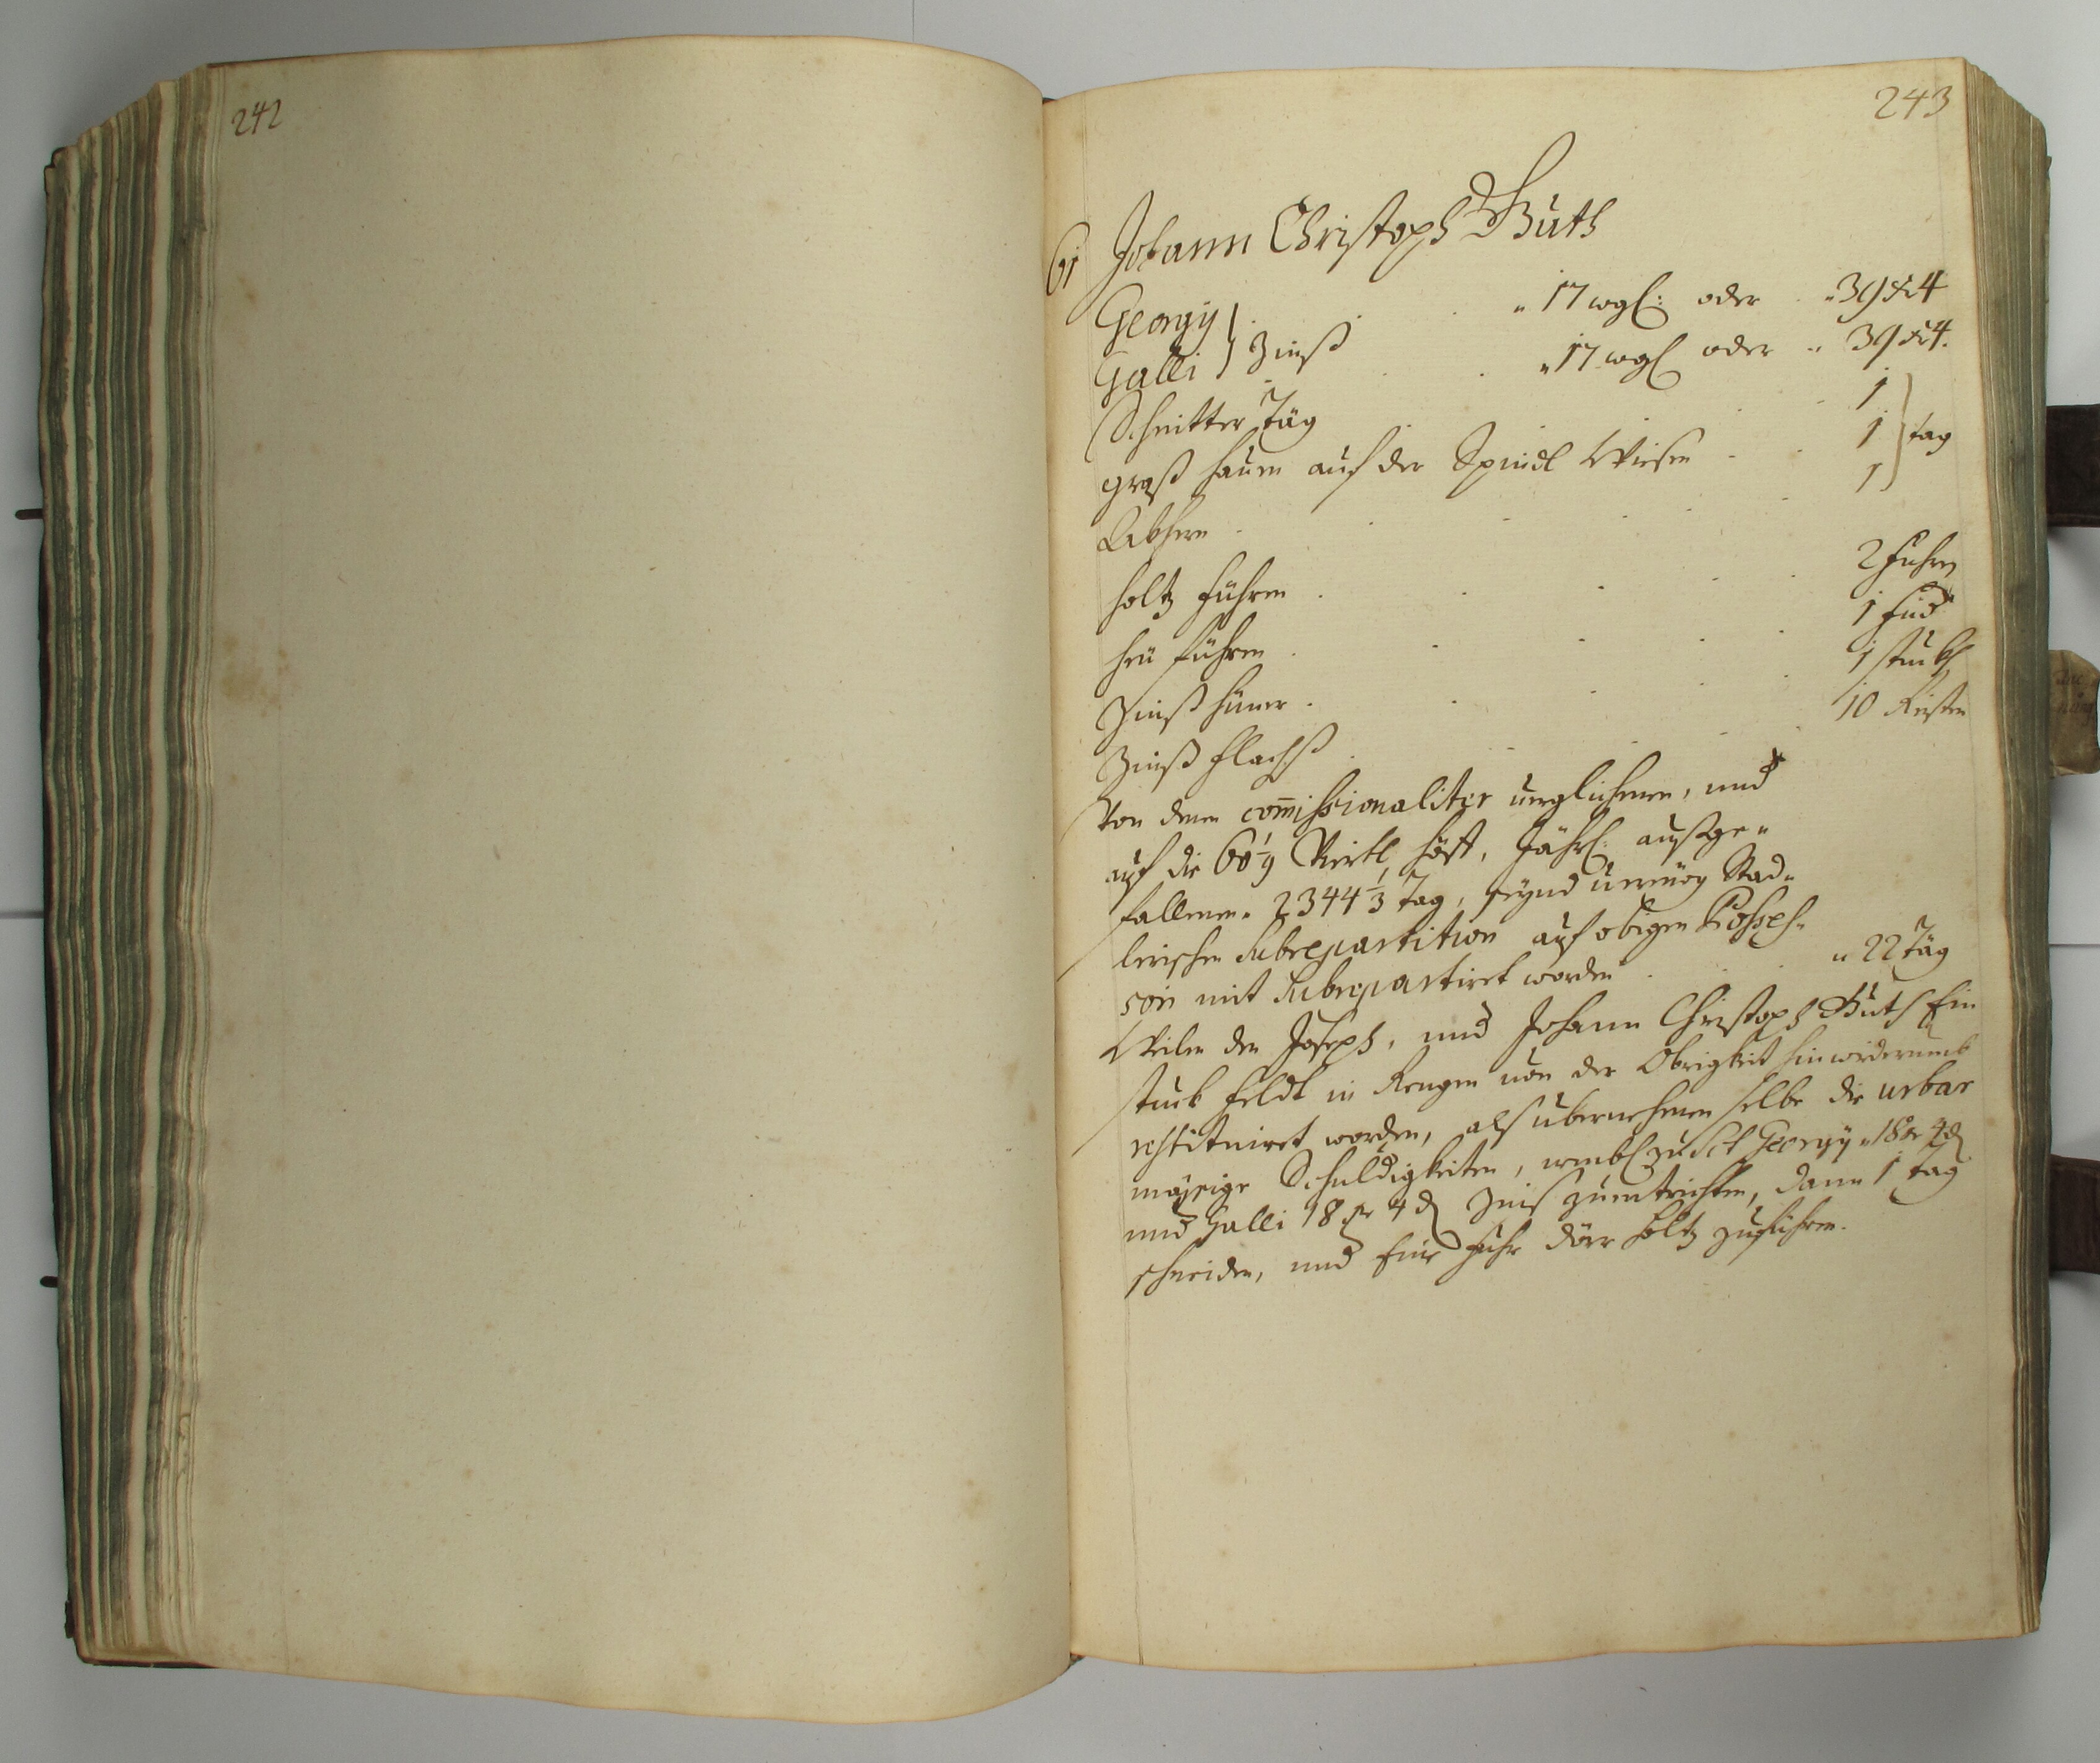 242
243
61 Johann Christoph Guth
Georgy } . . " 17 wgl: oder . " 39 xr 4
Galli } Zinß . . " 17 wgl oder " 39 xr 4.
Schnitter Täg . . 1 }
graß hauen auf der Spindl Wiesen . . 1 } tag
. . . . 1 }
holtz führen . . . . 2 Fuhren
heü führen . . . . 1 fud
Zinß hüner . . . . 1 stuckh
Zinß Flachß . . . . 10 Reisten
Von denen com̄issionaliter verglichenen, und
auf die 60 1/9 Viertl höff, Jährl: außge„
fallenen " 2344 1/3 Tag, seynd vermög Stad„
lerischen Subrepartition auf obigen Possess„
som mit Subrepartiret worden . . " 22 Täg
Weilen den Joseph, und Johann Christoph Guth Ein
stuck feldt in Rengen von der Obrigkeit hinwiderumb
restituiret worden, alß übernehmen selbe die urbar
mäßige Schuldigkeiten, nembl zu Sct Georgy " 18 xr 4 d
und Galli 18 xr 4 d Zinß zuentrichten, dann 1 tag
schneiden, und Eine Fuhr dörr holtz zuführen.